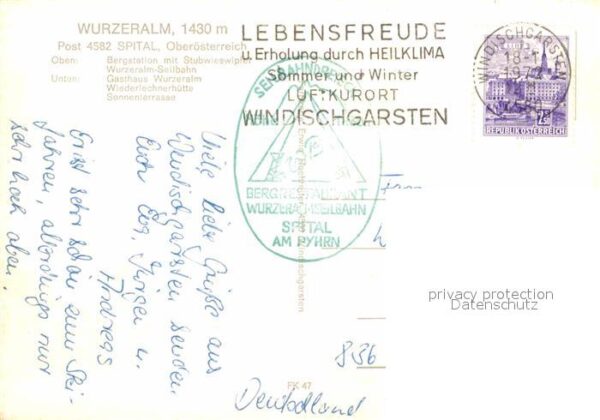 WURZERALM, 1430 m
Post 4582 SPITAL, Oberösterreich
Oben: Bergstation mit Stubwieswipfel
Wurzeralm-Seilbahn
Unten: Gasthaus Wurzeralm
Wiedlechnerhütte
Sonnenterrasse
LEBENSFREUDE
u. Erholung durch HEILKLIMA
Sommer und Winter
LUFTKURORT
WINDISCHGARSTEN
WINDISCHGARSTEN
REPUBLIK ÖSTERREICH
BERGRESTAURANT
WURZERALMSEILBAHN
SPITAL
AM PYHRN
Viele liebe Grüße aus
Windischgarsten senden
Euch
Andreas
Es ist sehr schön zum Ski-
fahren, allerdings nur
sehr hoch oben.
836
Deutschland
FK 47
privacy protection
Datenschutz